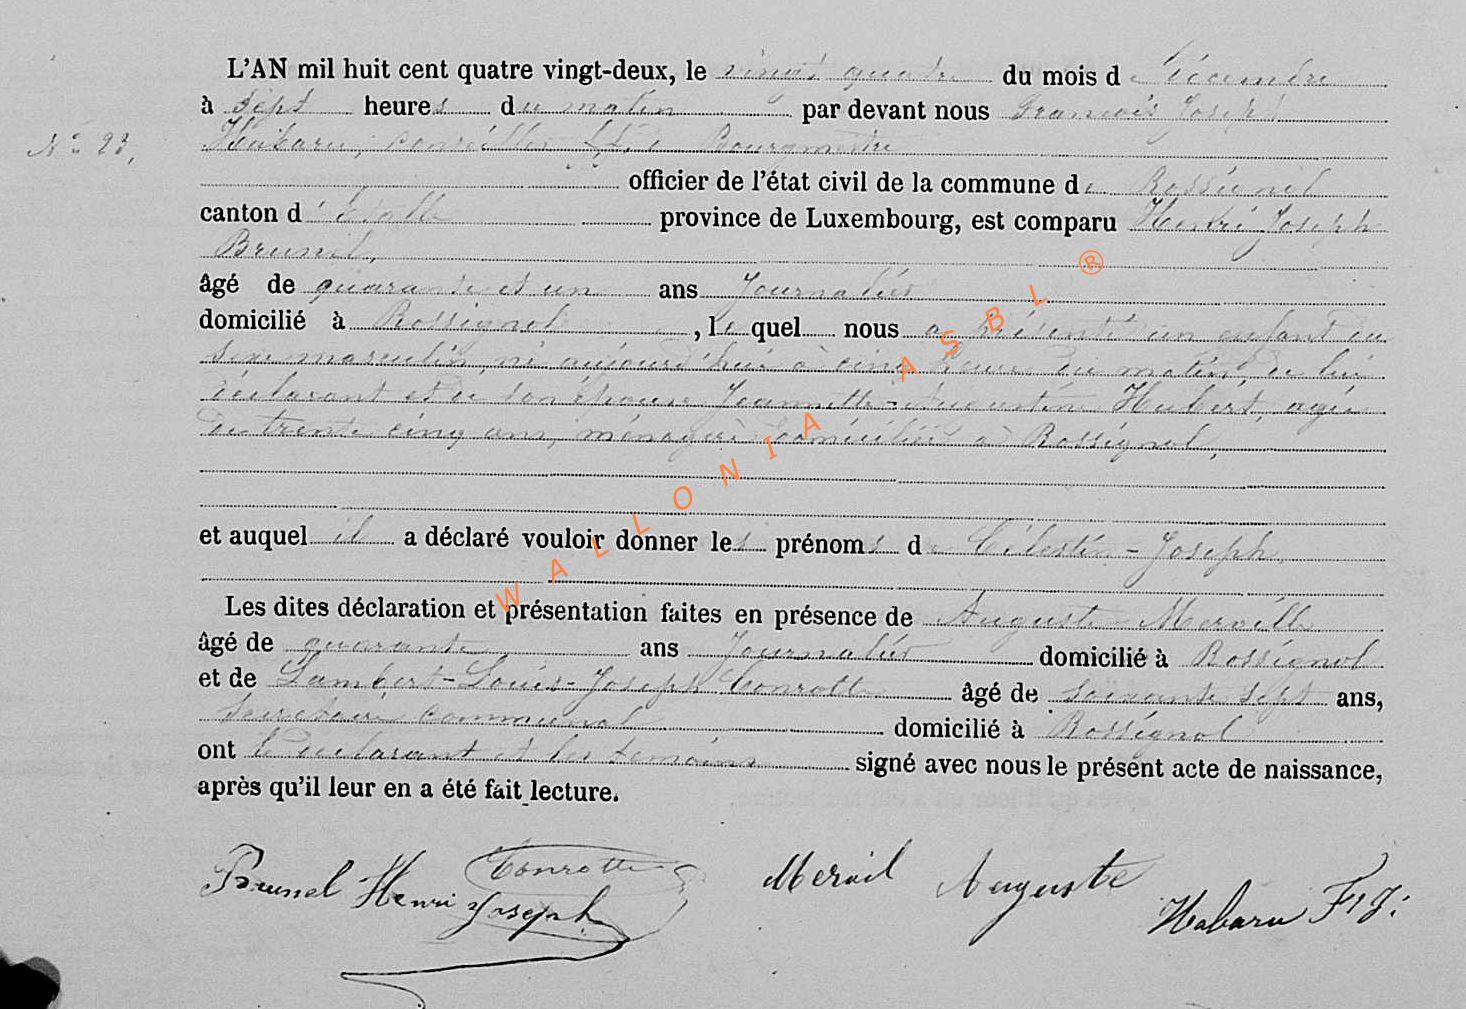 L'AN mil huit cent quatre vingt-deux, le vingt quatre du mois de Décembre
à sept heures du matin par devant nous François Joseph
N° 23,
Habaru, conseiller ff. de Bourgmestre
officier de l'état civil de la commune de Rossignol
canton d'Etalle province de Luxembourg, est comparu Henri Joseph
Brunel,
âgé de quarante et un ans Journalier
domicilié à Rossignol, le quel nous a présenté un enfant du
sexe masculin, né aujourd'hui à cinq heures du matin, de lui
déclarant et de son épouse Jeannette-Augustine Hubert, agée
de trente cinq ans, ménagère domiciliée à Rossignol,
et auquel il a déclaré vouloir donner les prénoms de Célestin-Joseph
Les dites déclaration et présentation faites en présence de Auguste Merville
âgé de quarante ans Journalier domicilié à Rossignol
et de Lambert-Louis-Joseph Conrotte âgé de soixante sept ans,
Secrétaire communal domicilié à Rossignol
ont le déclarant et les témoins signé avec nous le présent acte de naissance,
après qu'il leur en a été fait lecture.
Brunel Henri Joseph Conrotte Auguste Habaru F. J.
WALLONIA ASBL ®